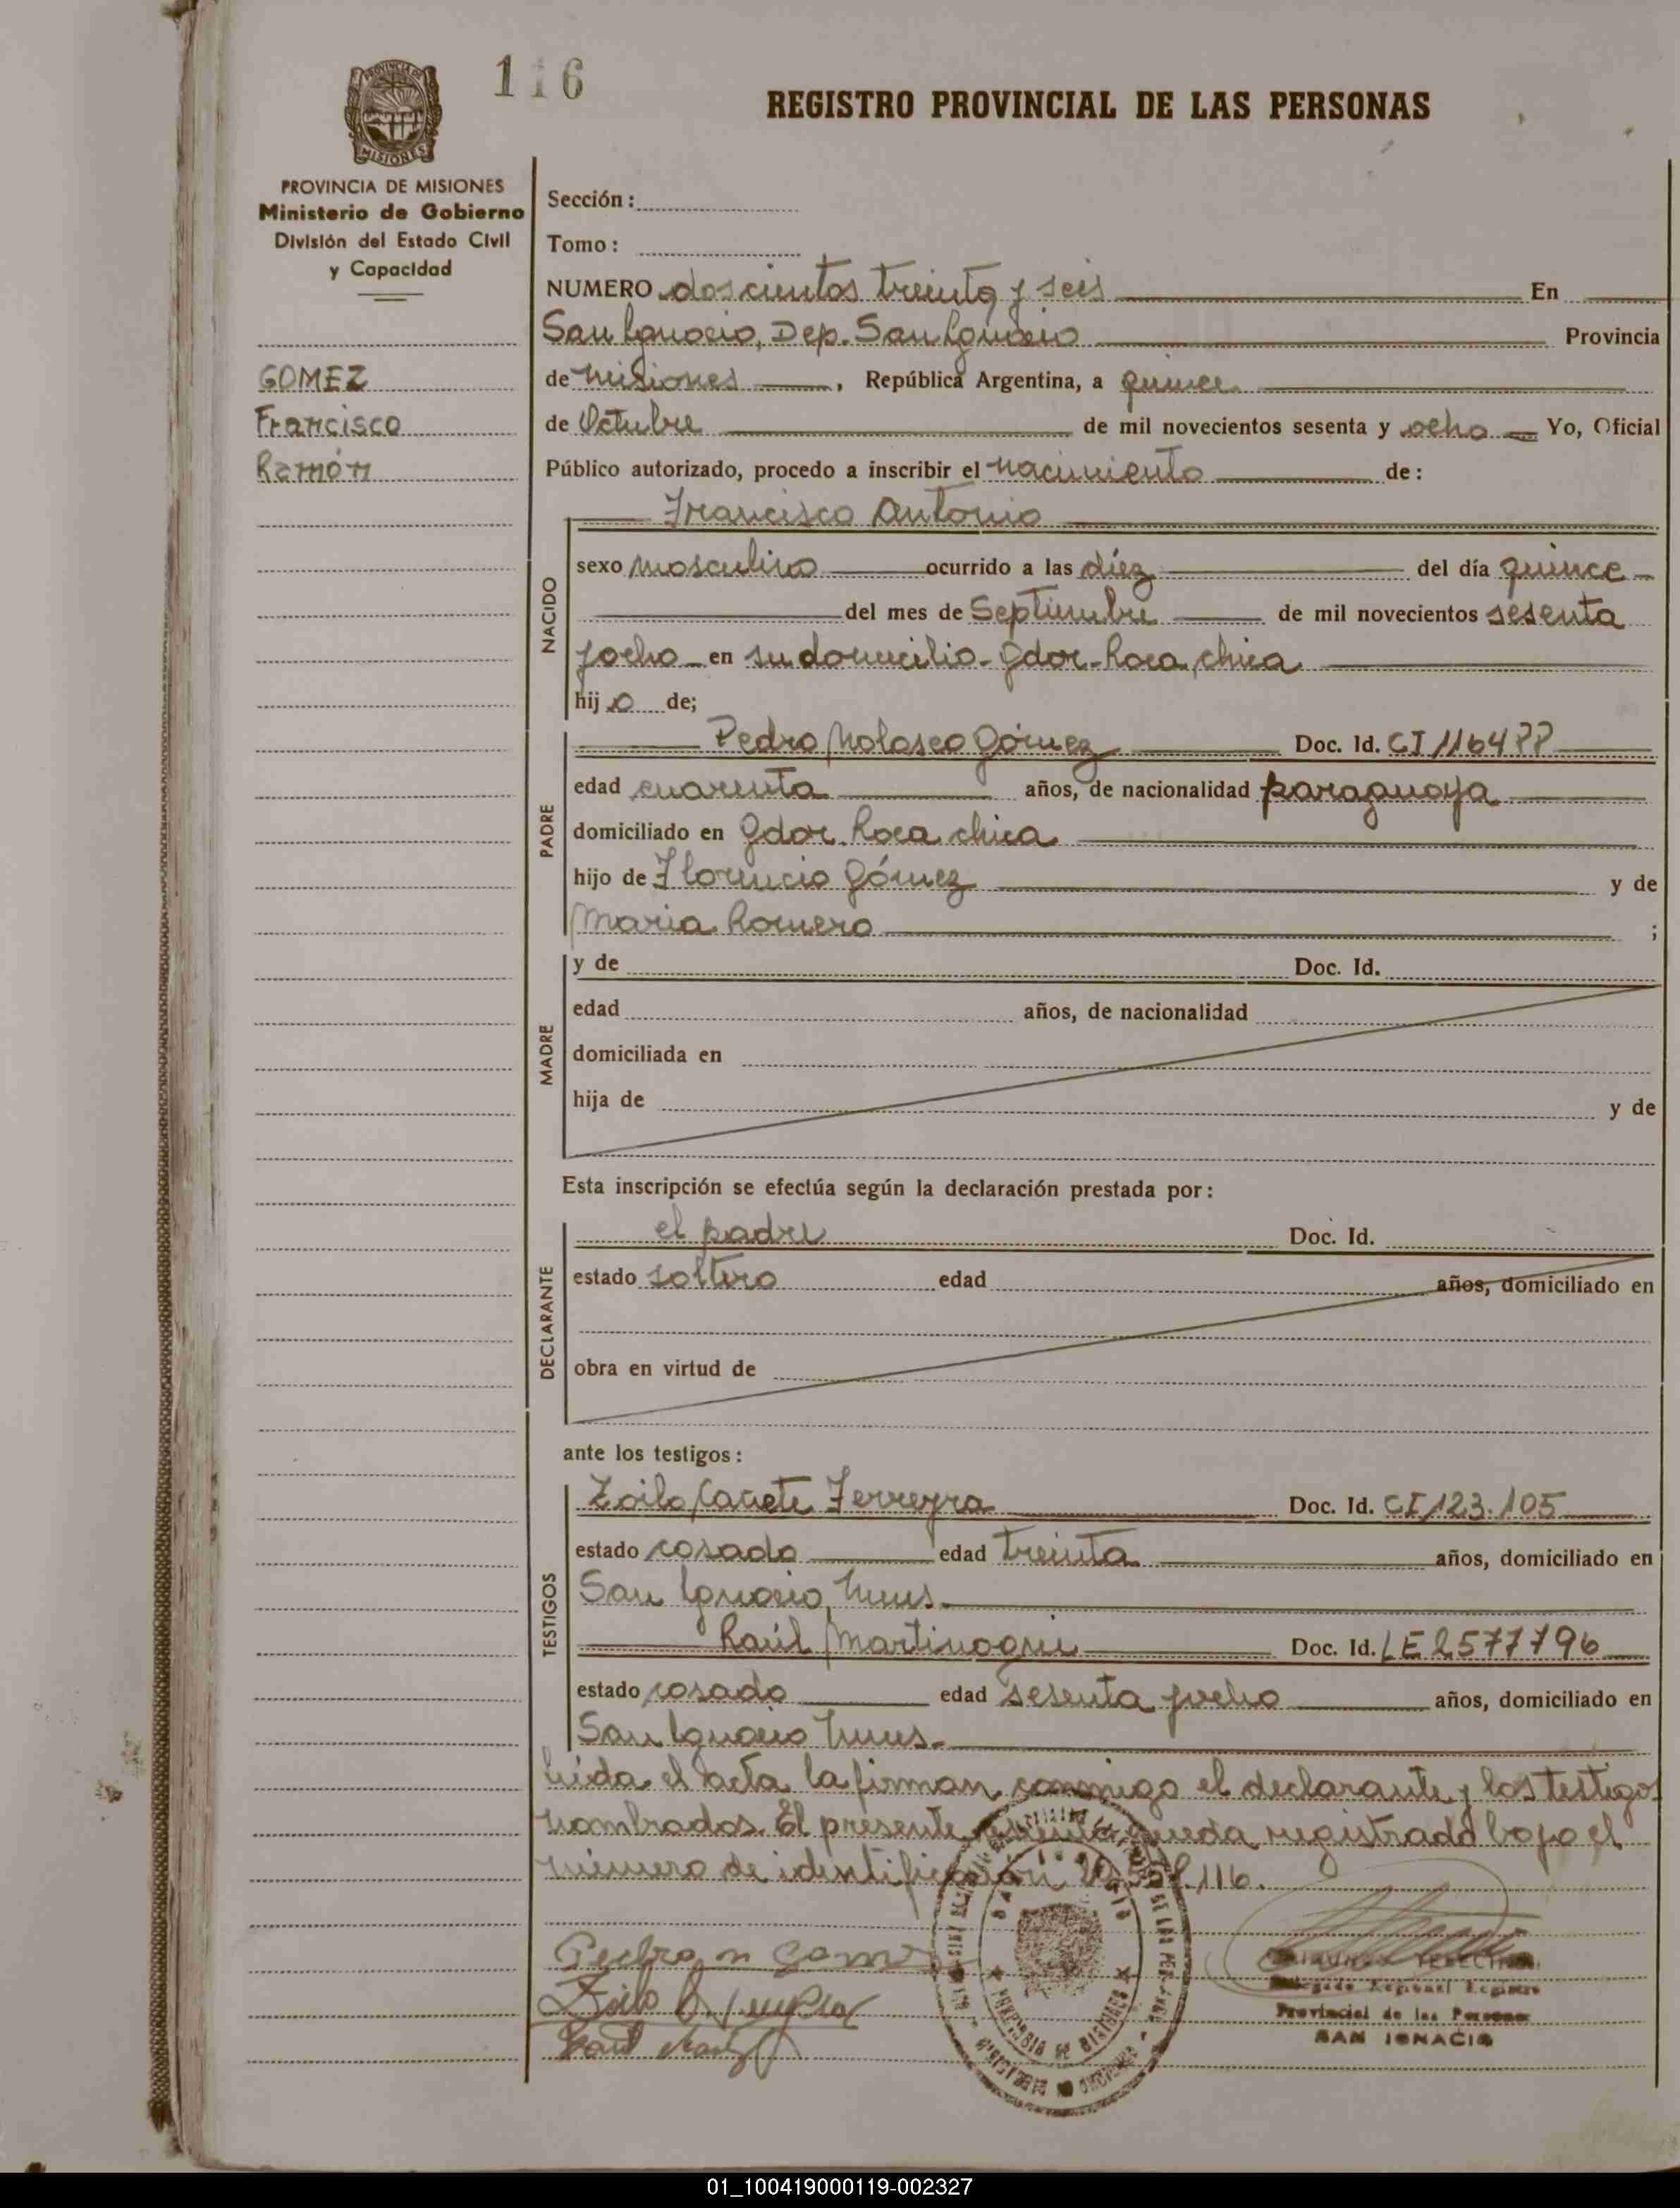 116
REGISTRO PROVINCIAL DE LAS PERSONAS
PROVINCIA DE MISIONES
MISIONES
PROVINCIA DE MISIONES
Ministerio de Gobierno
División del Estado Civil
y Capacidad
GOMEZ
Francisco
Ramón
Sección:
Tomo:
NUMERO doscientos treinta y seis En
San Ignacio, Dep. San Ignacio Provincia
de Misiones, República Argentina, a quince
de Octubre de mil novecientos sesenta y ocho Yo, Oficial
Público autorizado, procedo a inscribir el nacimiento de:
NACIDO
Francisco Antonio
sexo masculino ocurrido a las diez del día quince
del mes de Septiembre de mil novecientos sesenta
y ocho en su domicilio - Gdor. Roca, chica
hijo de;
PADRE
Pedro Nolasco Gómez Doc. Id. CI 1164
edad cuarenta años, de nacionalidad paraguaya
domiciliado en Gdor. Roca chica
hijo de Florencio Gómez y de
Maria Romero ;
MADRE
y de Doc. Id.
edad años, de nacionalidad
domiciliada en
hija de y de
Esta inscripción se efectúa según la declaración prestada por:
DECLARANTE
el padre Doc. Id.
estado soltero edad años, domiciliado en
obra en virtud de
ante los testigos:
TESTIGOS
Zoilo Cañete Ferreyra Doc. Id. CI 123.105
estado casado edad treinta años, domiciliado en
San Ignacio, Mnes.
Raúl Martinogui Doc. Id. LE 2577796
estado casado edad sesenta y ocho años, domiciliado en
San Ignacio Mnes.
Leida el acta la firman conmigo el declarante y los testigos
nombrados. El presente queda registrado bajo el
número de identificación 116.
Pedro n Gomez
Zoilo
Raul
Delegado Regional Registro
Provincial de las Personas
SAN IGNACIO
PROVINCIA DE MISIONES
01_100419000119-002327